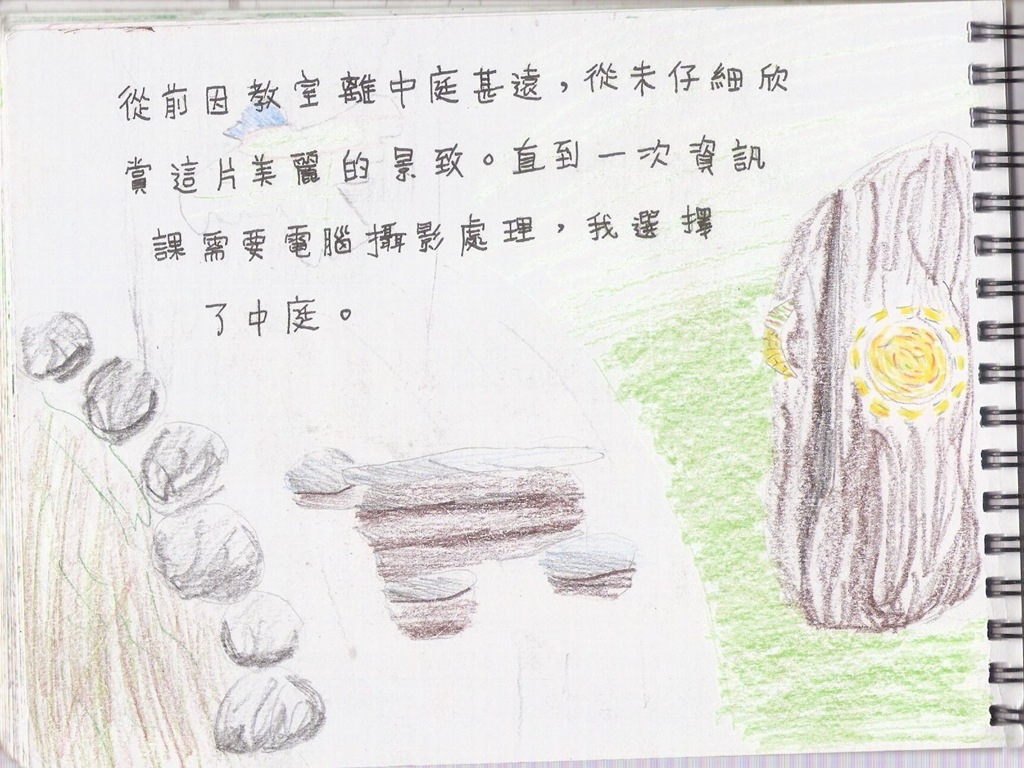 從前因教室離中庭甚遠，從未仔細欣
賞這片美麗的景致。直到一次資訊
課需要電腦攝影處理，我選擇
了中庭。